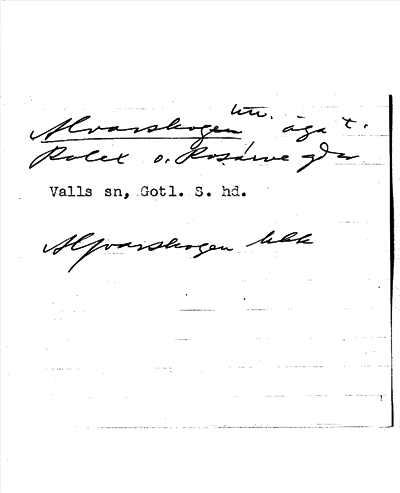 Alvarskogen utr. äga t.
Rolex o. Rosarve gdr
Valls sn, Gotl. S. hd.
Alfvarskogen